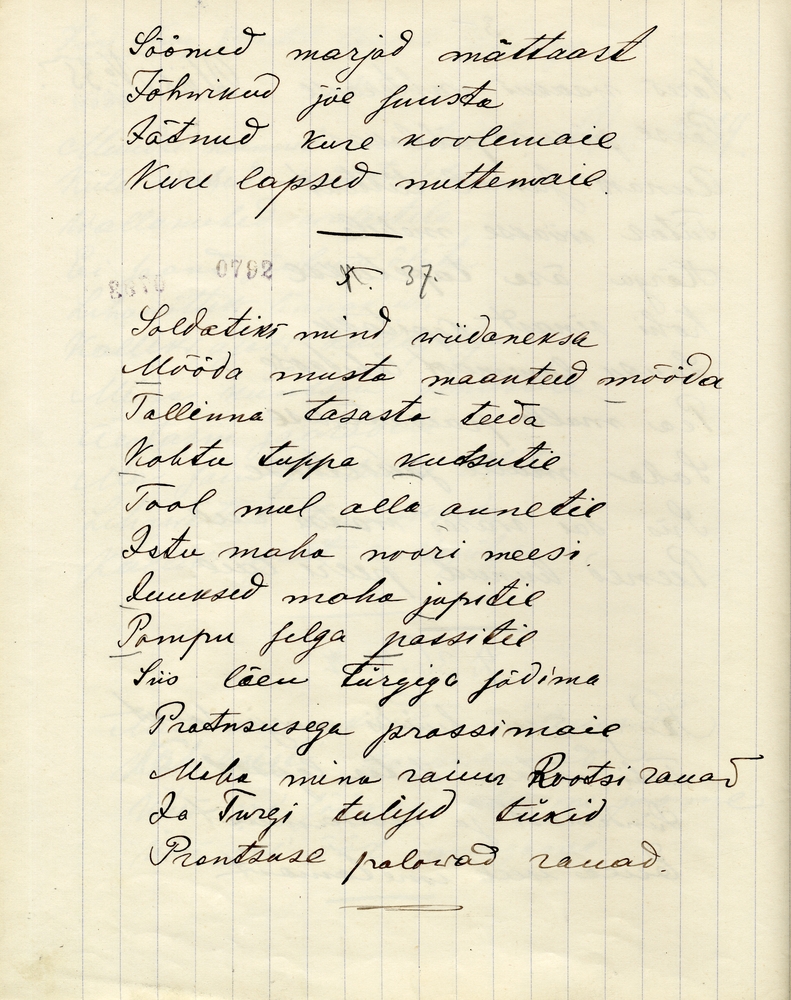 Söönud marjad mättaast
Jõhwikud jõe suusta
Jätnud kure koolemaie
Kure lapsed nuttemaie.
0792
X. 37.
Soldatiks mind wiidaneksa
Mööda musta maanteed mööda
Tallinna tasasta teeda
Kohtu tuppa kutsutie
Tool mul alla annetie
Istu maha noori meesi.
Juuksed maha japitie
Pampu selga passitie
Siis läen Türgiga södima
Prantsusega prassimaie
Maha mina raiun Rootsi rauad
Ja Turgi tulised tükid
Prantsuse palawad rauad.